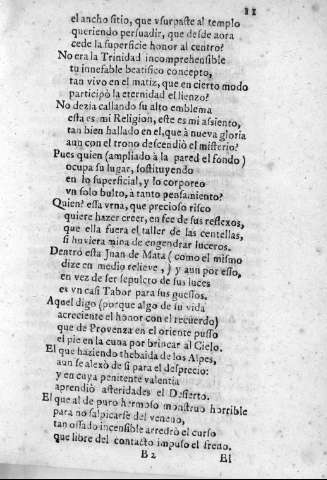 11
el ancho sitio, que vsurpaste al templo
queriendo persuadir, que desde aora
cede la superficie honor al centro?
No era la Trinidad incomprehensible
tu innefable beatifico concepto,
tan vivo en el matiz, que en cierto modo
participò la eternidad el lienzo?
No dezia callando su alto emblema
esta es mi Religion, este es mi assiento,
tan bien hallado en el, que à nueva gloria
aun con el trono descendiò el misterio?
Pues quien (ampliado à la pared el fondo)
ocupa su lugar, sostituyendo
en lo superficial, y lo corporeo
vn solo bulto, à tanto pensamiento?
Quien? essa vrna, que precioso risco
quiere hazer creer, en fee de sus reflexos,
que ella fuera el taller de las centellas,
si huviera mina de engendrar luceros.
Dentro esta Juan de Mata (como el mismo
dize en medio relieve,) y aun por esso,
en vez de ser sepulcro de sus luces
es vn casi Tabor para sus guessos.
Aquel digo (porque algo de su vida
acreciente el honor con el recuerdo)
que de Provenza en el oriente puso
el pie en la cuna por brincar al Cielo.
El que haziendo thebaida de los Alpes,
aun se alexò de si para el desprecio:
y en cuya penitente valentia
aprendiò asteridades el Desierto.
El que al de puro hermoso monstruo horrible
para no salpicarse del veneno,
tan ossado incensible arredrò el curso
que libre del contacto impuso el freno.
B2 El